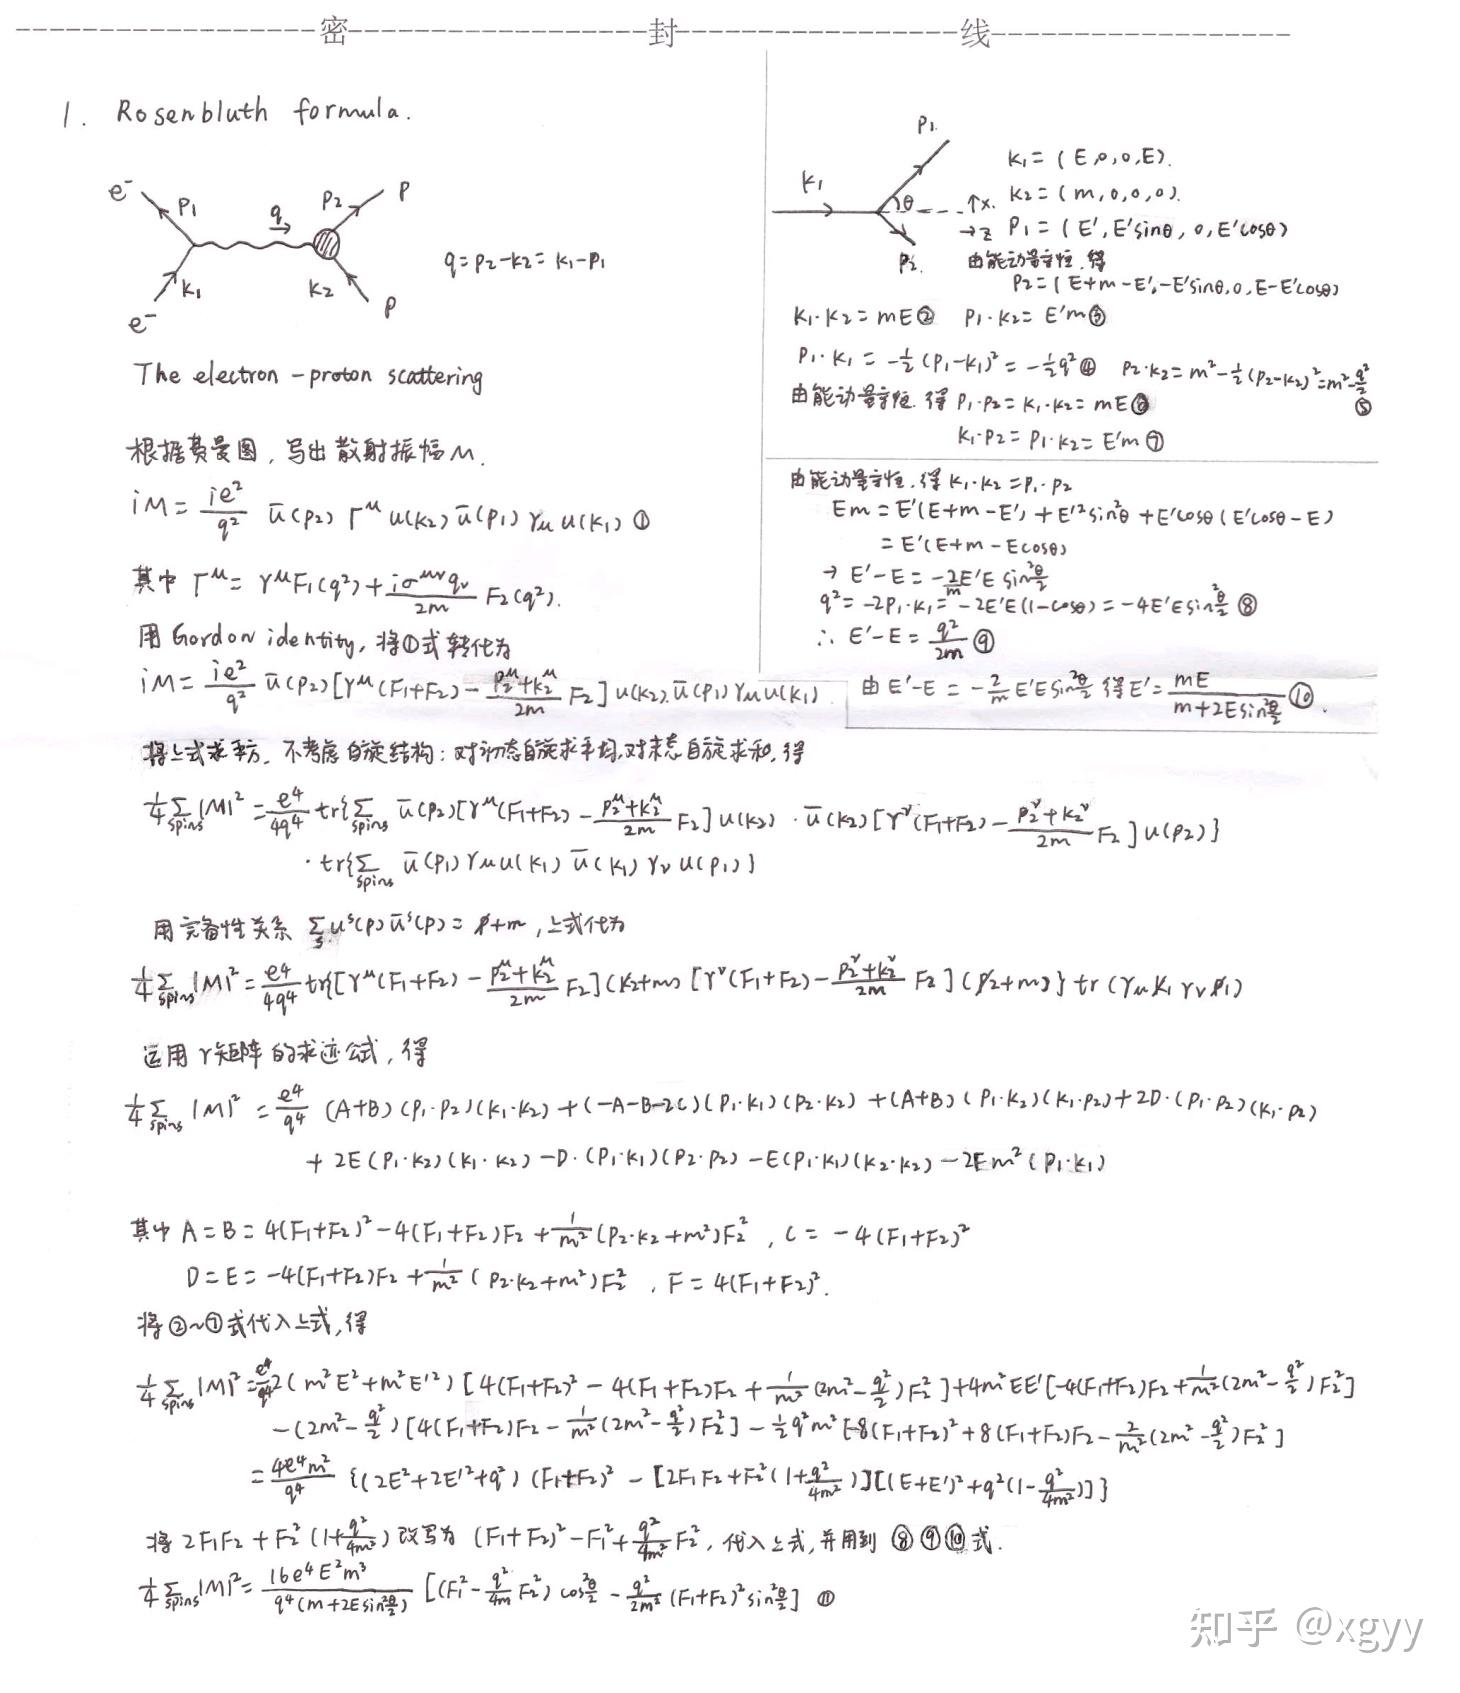 密 封 线
1. Rosenbluth formula.
e⁻ p₁ q p₂ p
e⁻ k₁ k₂ p
q=p₂-k₂=k₁-p₁
The electron-proton scattering
根据费曼图，写出散射振幅M.
iM = ie²/q² ū(p₂) Γ^μ u(k₂) ū(p₁) γμ u(k₁) ①
其中 Γ^μ = γ^μ F₁(q²) + iσ^{μν}q_ν/2m F₂(q²).
用 Gordon identity, 将①式转化为
iM = ie²/q² ū(p₂)[γ^μ(F₁+F₂) - (p₂^μ+k₂^μ)/2m F₂] u(k₂). ū(p₁) γμ u(k₁)
k₁ p₁ θ p₂ ↑x →z
k₁ = (E,0,0,E).
k₂ = (m,0,0,0).
p₁ = (E', E'sinθ, 0, E'cosθ)
由能动量守恒, 得
p₂ = (E+m-E', -E'sinθ, 0, E-E'cosθ)
k₁·k₂ = mE ② p₁·k₂ = E'm ③
p₁·k₁ = -½(p₁-k₁)² = -½q² ④ p₂·k₂ = m²-½(p₂-k₂)² = m²-q²/2 ⑤
由能动量守恒. 得 p₁·p₂ = k₁·k₂ = mE ⑥
k₁·p₂ = p₁·k₂ = E'm ⑦
由能动量守恒, 得 k₁·k₂ = p₁·p₂
Em = E'(E+m-E') + E'²sin²θ + E'cosθ(E'cosθ-E)
= E'(E+m-Ecosθ)
→ E'-E = -2/m E'E sin²θ/2
q² = -2p₁·k₁ = -2E'E(1-cosθ) = -4E'E sin²θ/2 ⑧
∴ E'-E = q²/2m ⑨
由 E'-E = -2/m E'E sin²θ/2 得 E' = mE/(m+2E sin²θ/2) ⑩.
将上式求平方. 不考虑自旋结构: 对初态自旋求平均, 对末态自旋求和, 得
¼ Σ_spins |M|² = e⁴/4q⁴ tr{Σ_spins ū(p₂)[γ^μ(F₁+F₂) - (p₂^μ+k₂^μ)/2m F₂] u(k₂) · ū(k₂)[γ^ν(F₁+F₂) - (p₂^ν+k₂^ν)/2m F₂] u(p₂)}
· tr{Σ_spins ū(p₁) γμ u(k₁) ū(k₁) γν u(p₁)}
用完备性关系 Σ_s u^s(p) ū^s(p) = p̸+m, 上式化为
¼ Σ_spins |M|² = e⁴/4q⁴ tr{[γ^μ(F₁+F₂) - (p₂^μ+k₂^μ)/2m F₂](k̸₂+m)[γ^ν(F₁+F₂) - (p₂^ν+k₂^ν)/2m F₂](p̸₂+m)} tr(γμ k̸₁ γν p̸₁)
运用γ矩阵的求迹公式, 得
¼ Σ_spins |M|² = e⁴/q⁴ (A+B)(p₁·p₂)(k₁·k₂) + (-A-B-2C)(p₁·k₁)(p₂·k₂) + (A+B)(p₁·k₂)(k₁·p₂) + 2D·(p₁·p₂)(k₁·p₂)
+ 2E(p₁·k₂)(k₁·k₂) - D·(p₁·k₁)(p₂·p₂) - E(p₁·k₁)(k₂·k₂) - 2Fm²(p₁·k₁)
其中 A=B=4(F₁+F₂)²-4(F₁+F₂)F₂+1/m²(p₂·k₂+m²)F₂², C=-4(F₁+F₂)²
D=E=-4(F₁+F₂)F₂+1/m²(p₂·k₂+m²)F₂², F=4(F₁+F₂)².
将②~⑦式代入上式, 得
¼ Σ_spins |M|² = e⁴/q⁴ 2(m²E²+m²E'²)[4(F₁+F₂)²-4(F₁+F₂)F₂+1/m²(2m²-q²/2)F₂²]+4m²EE'[-4(F₁+F₂)F₂+1/m²(2m²-q²/2)F₂²]
-(2m²-q²/2)[4(F₁+F₂)F₂-1/m²(2m²-q²/2)F₂²]-½q²m²[-8(F₁+F₂)²+8(F₁+F₂)F₂-2/m²(2m²-q²/2)F₂²]
= 4e⁴m²/q⁴ {(2E²+2E'²+q²)(F₁+F₂)²-[2F₁F₂+F₂²(1+q²/4m²)][(E+E')²+q²(1-q²/4m²)]}
将 2F₁F₂+F₂²(1+q²/4m²) 改写为 (F₁+F₂)²-F₁²+q²/4m² F₂², 代入上式, 并用到⑧⑨⑩式.
¼ Σ_spins |M|² = 16e⁴E²m³/q⁴(m+2E sin²θ/2) [(F₁²-q²/4m F₂²)cos²θ/2-q²/2m²(F₁+F₂)²sin²θ/2] ⑪
知乎 @xgyy